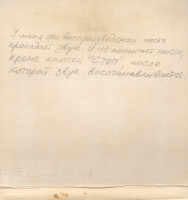 У меня при воспроизведении часто
пропадает звук. И не помогает ничего,
кроме кнопки "СТОП", после
которой звук восстанавливается.